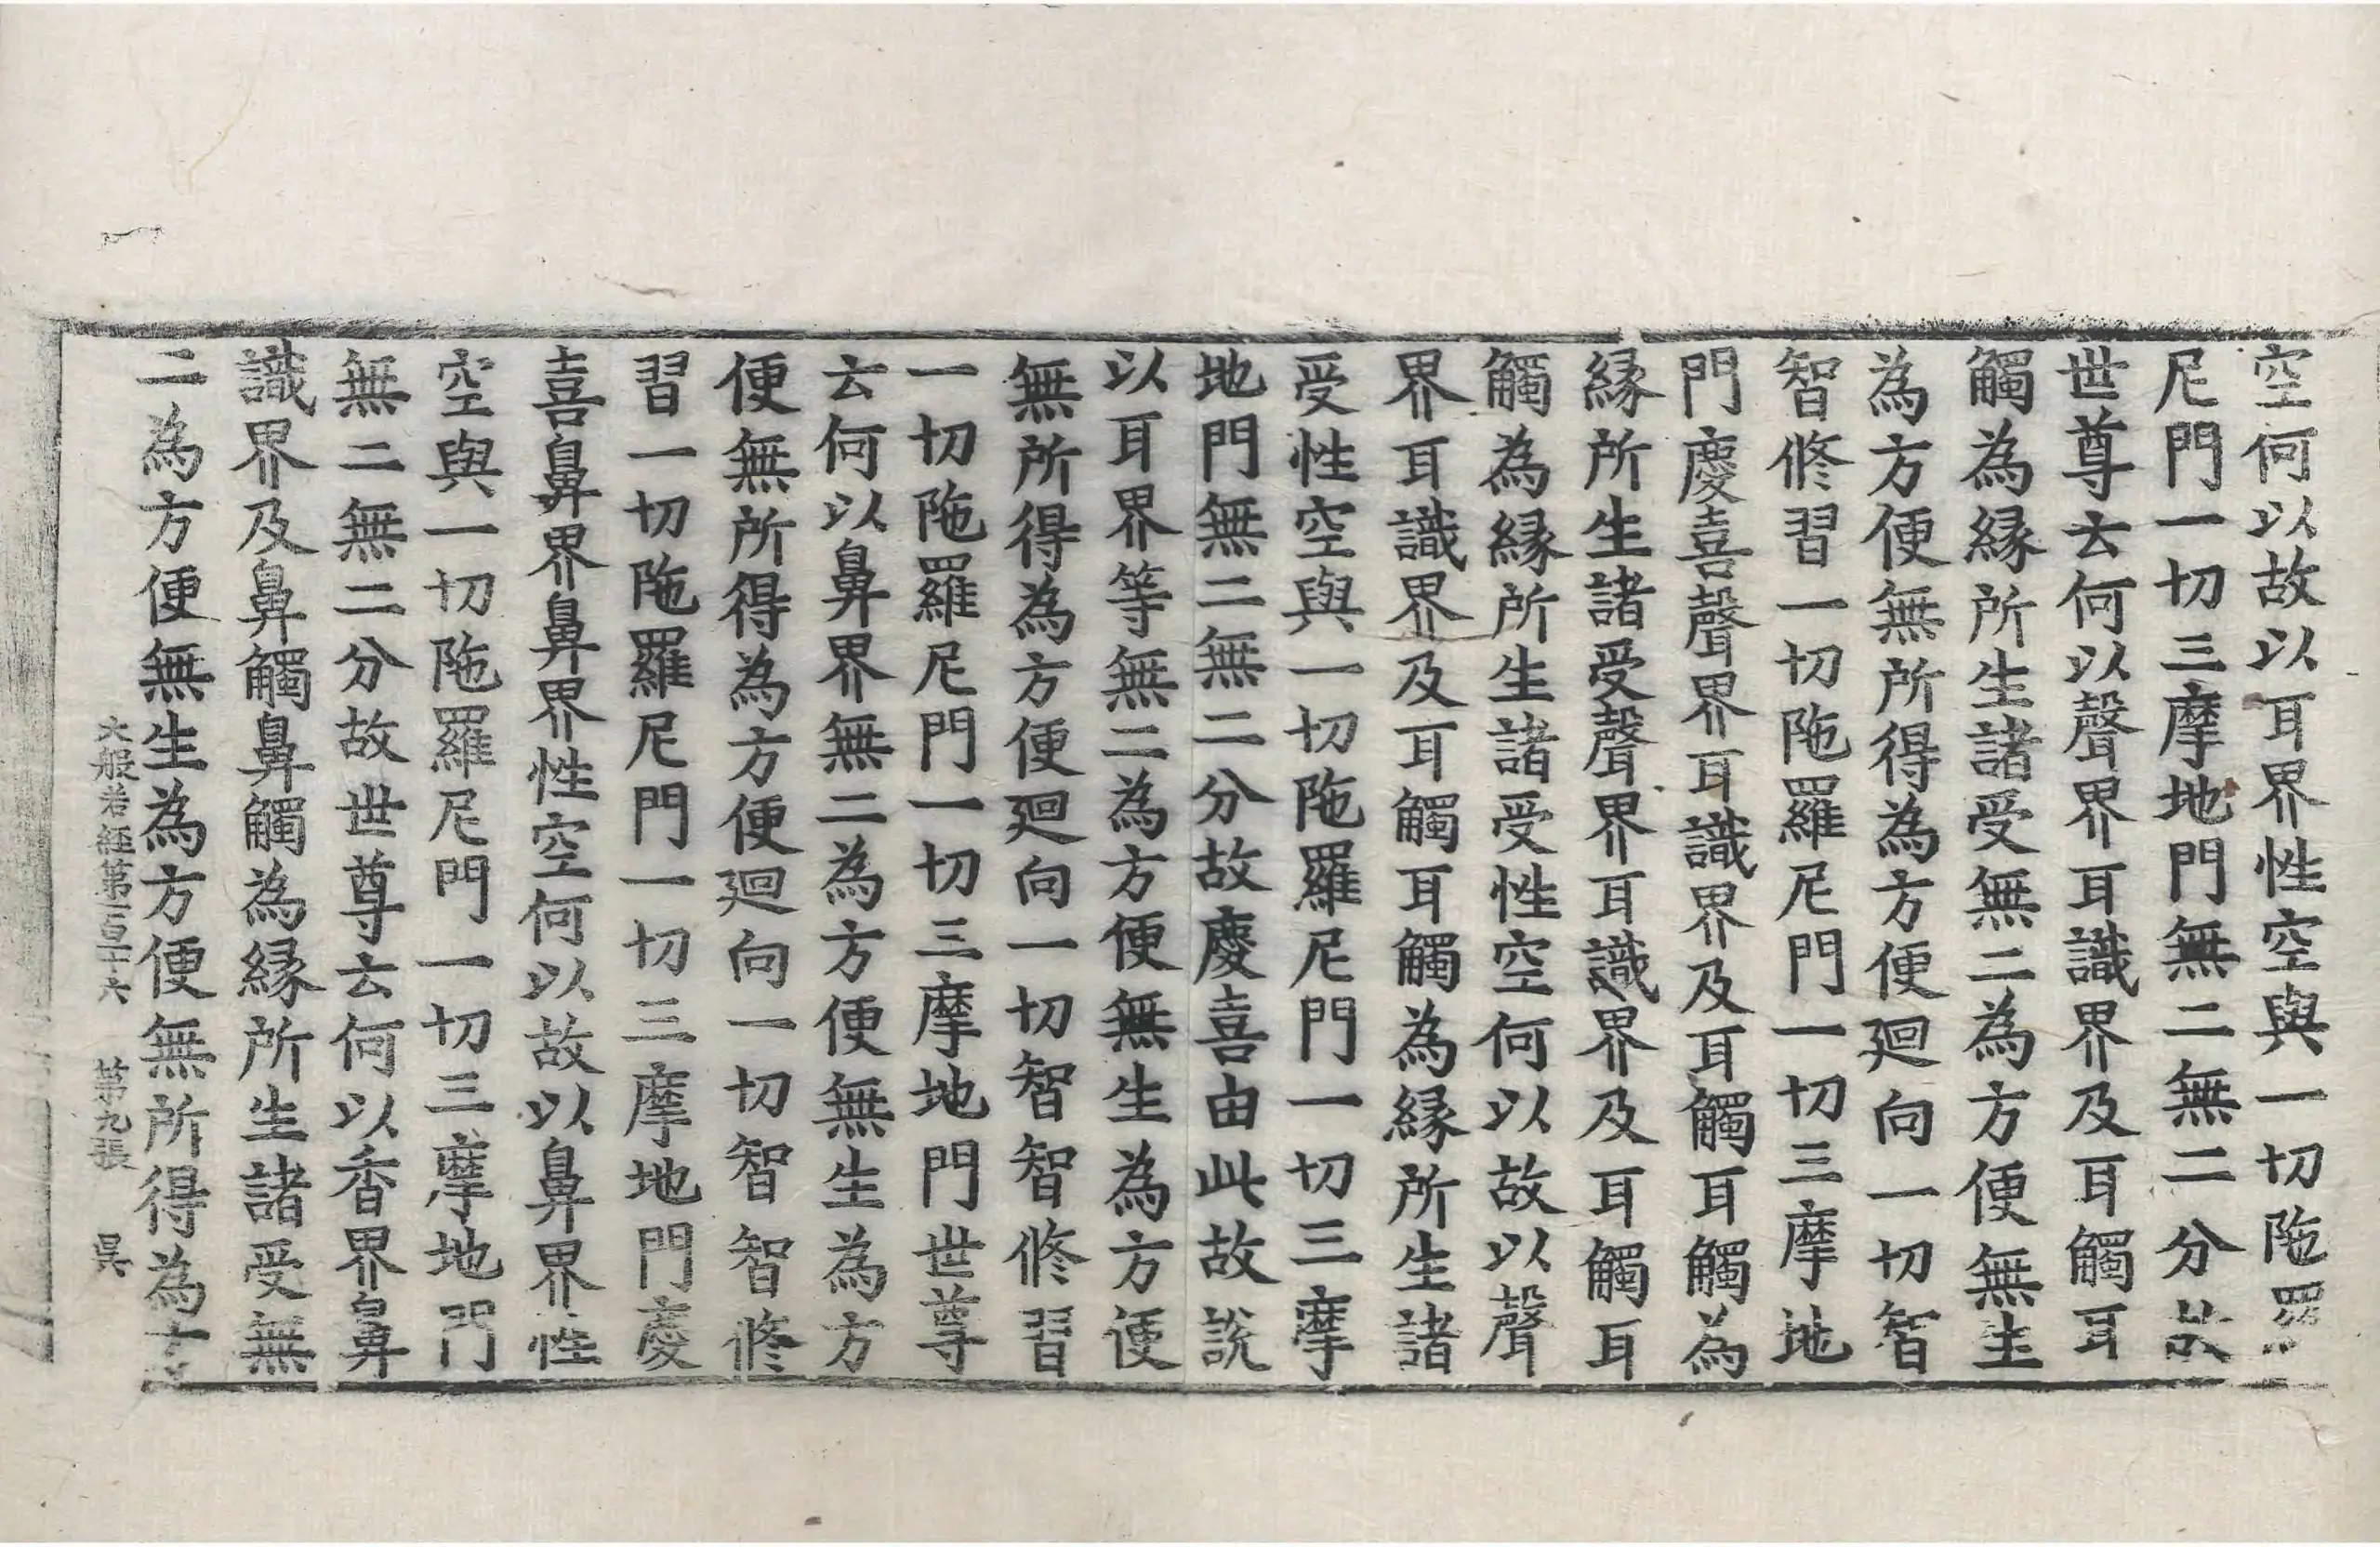 空何以故以耳界性空與一切陁羅
尼門一切三摩地門無二無二分故
世尊云何以聲界耳識界及耳觸耳
觸為緣所生諸受無二為方便無生
為方便無所得為方便廻向一切智
智修習一切陁羅尼門一切三摩地
門慶喜聲界耳識界及耳觸耳觸為
緣所生諸受聲界耳識界及耳觸耳
觸為緣所生諸受性空何以故以聲
界耳識界及耳觸耳觸為緣所生諸
受性空與一切陁羅尼門一切三摩
地門無二無二分故慶喜由此故說
以耳界等無二為方便無生為方便
無所得為方便廻向一切智智修習
一切陁羅尼門一切三摩地門世尊
云何以鼻界無二為方便無生為方
便無所得為方便廻向一切智智修
習一切陁羅尼門一切三摩地門慶
喜鼻界鼻界性空何以故以鼻界性
空與一切陁羅尼門一切三摩地門
無二無二分故世尊云何以香界鼻
識界及鼻觸鼻觸為緣所生諸受無
二為方便無生為方便無所得為
大般若經第百十六 第九張 吳